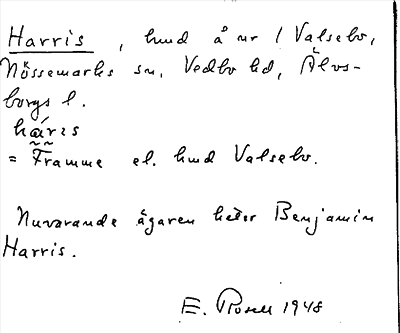 Harris, hmd å nr 1 Valsebo,
Nössemarks sn, Vedbo hd, Älvs-
borgs l.
hár̀ɪs
= Framme el. hmd Valsebo.
Nuvarande ägaren heter Benjamin
Harris.
E. Rosell 1948